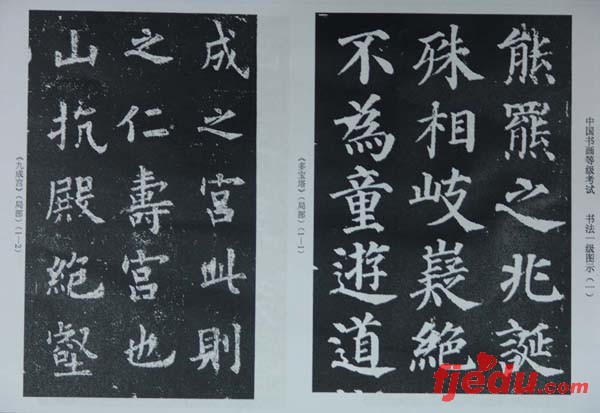 中国书画等级考试 书法一级图示(一)
熊罴之兆诞
殊相岐嶷绝
不為童遊道
《多宝塔》(局部)(1—1)
成之宮此則
之仁壽宮也
山抗殿絶壑
《九成宫》(局部)(1—2)
fjedu.com